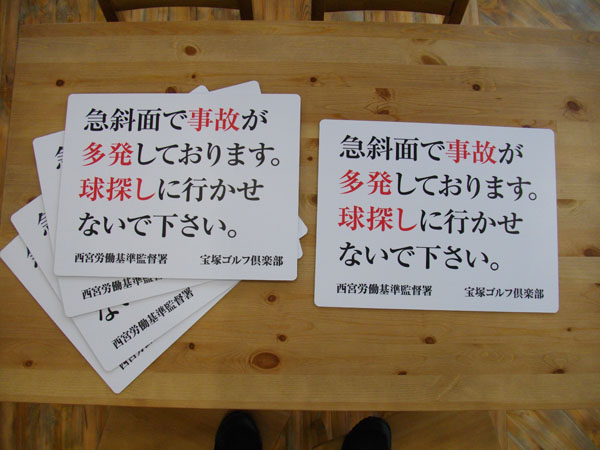 急斜面で事故が
多発しております。
球探しに行かせ
ないで下さい。
西宮労働基準監督署 宝塚ゴルフ倶楽部
急斜面で事故が
多発しております。
球探しに行かせ
ないで下さい。
西宮労働基準監督署 宝塚ゴルフ倶楽部
急
な
西宮労働基準監督署
西宮労働基準監督署